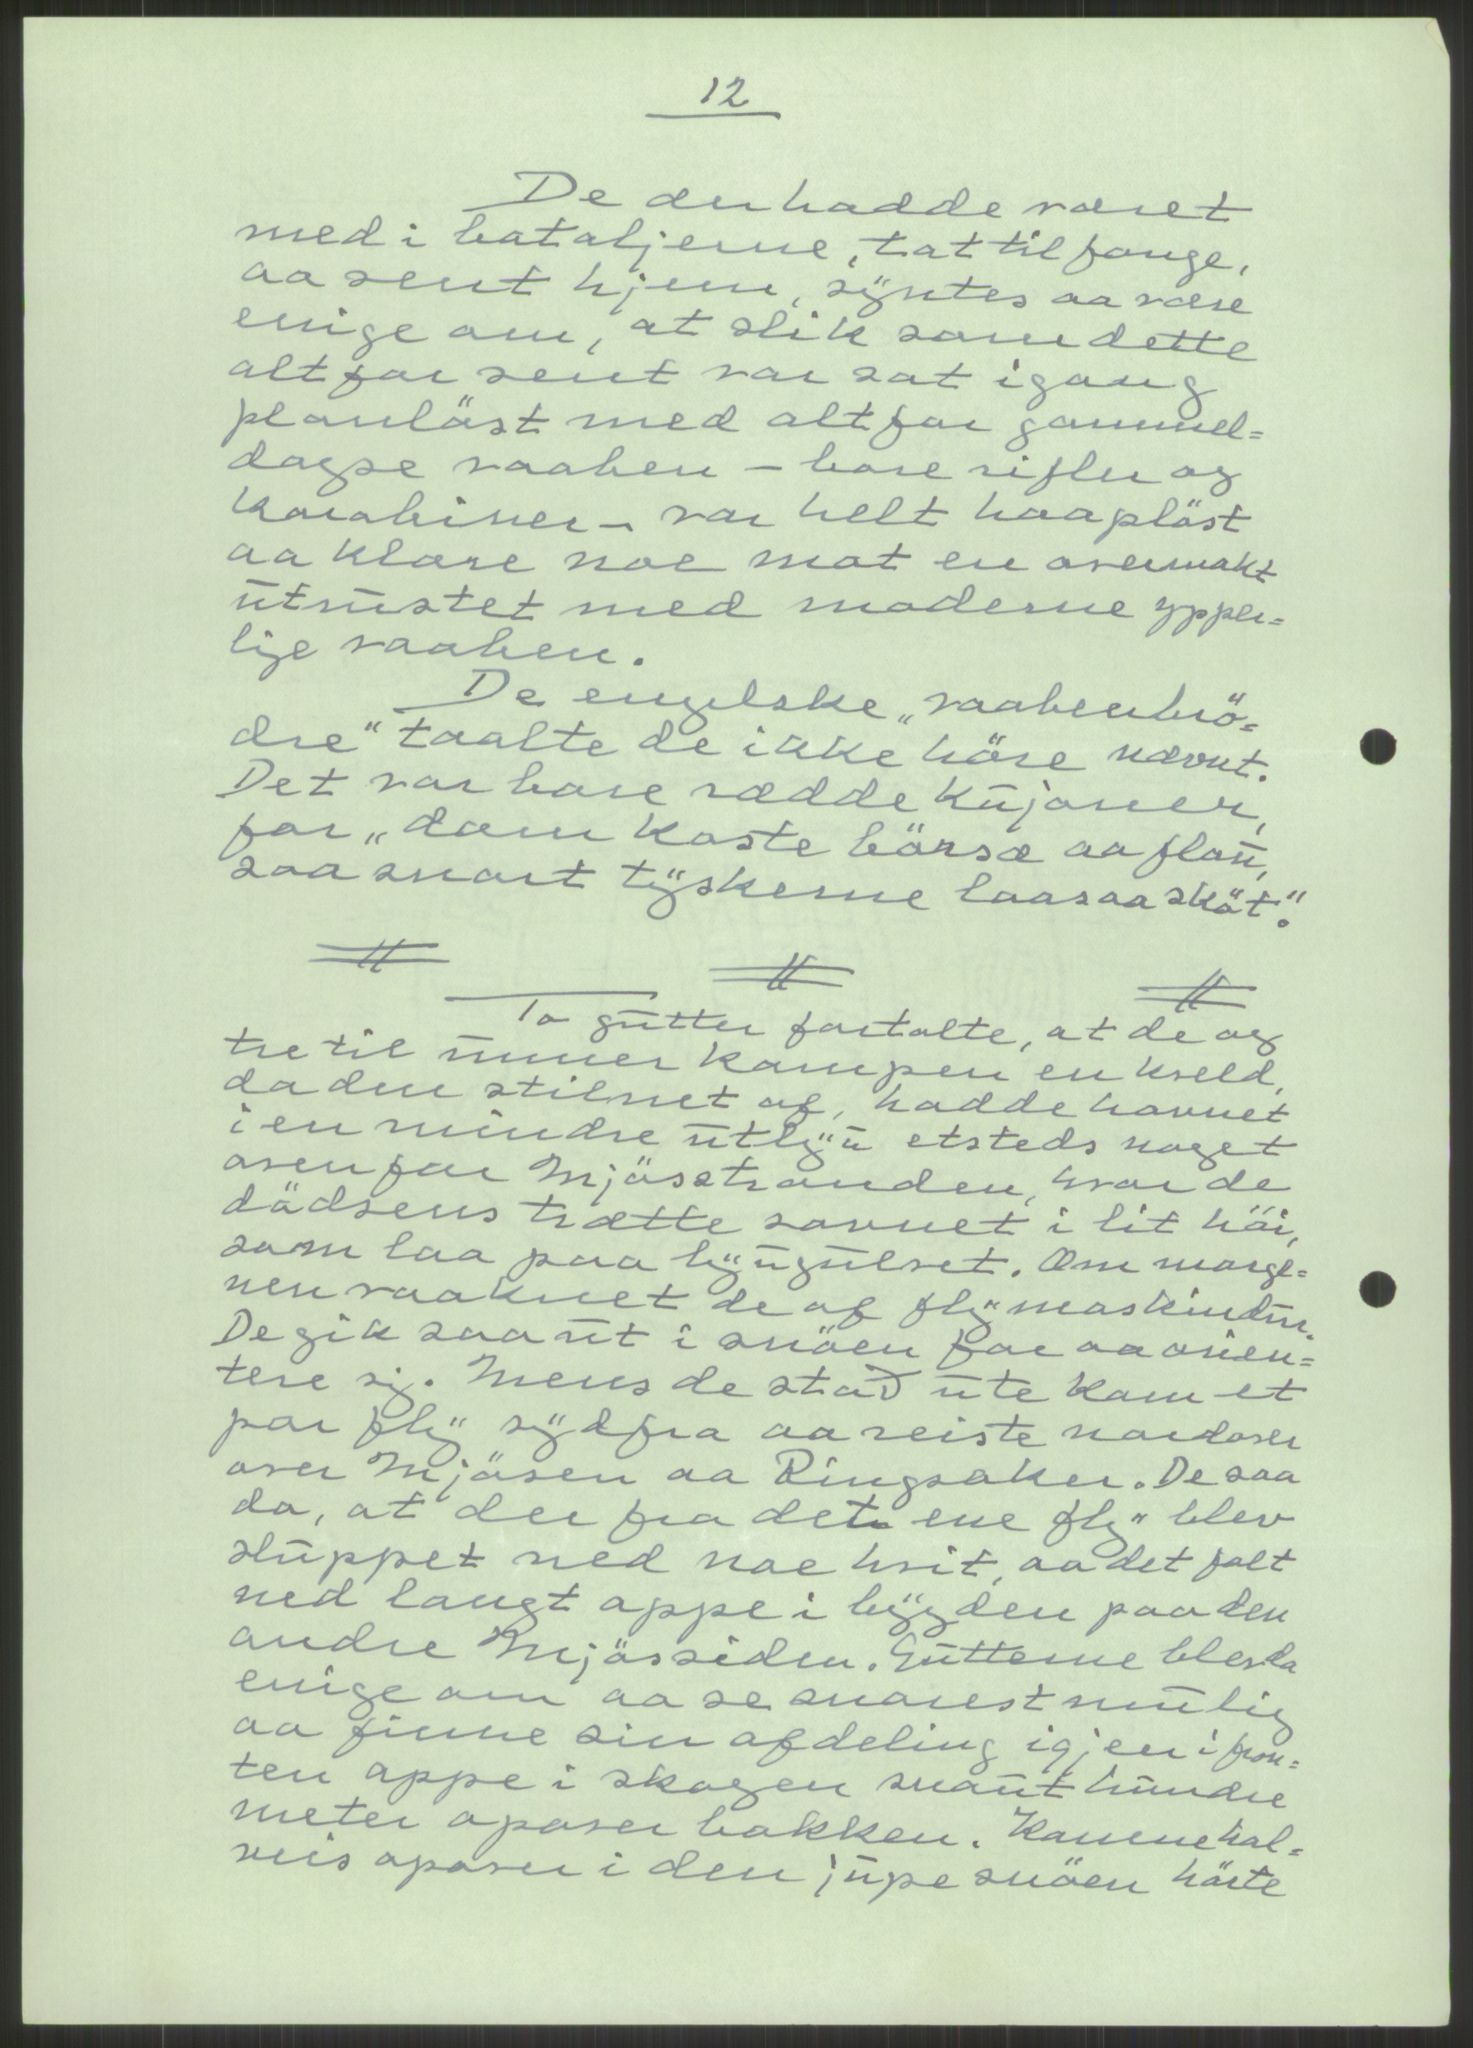 12
De der hadde været
med i bataljerne, tat til fange,
aa sent hjem, syntes aa være
enige om, at slik som dette
alt for sent var sat igang
planlöst med alt for gammel=
dagse vaaben – bare rifler og
karabiner – var helt haaplöst
aa klare noe mot en overmakt
utrustet med moderne ypper=
lige vaaben.
De engelske „vaabenbrö=
dre" taalte de ikke höre nævnt.
Det var bare rædde kujoner,
for „dom kaste börsæ aa flau,
saa snart tyskerne laasaa sköt".
To gutter fortalte, at de og
tre til under kampen en kveld,
da den stilnet af, hadde havnet
i en mindre utbygn etsteds noget
ovenfor Mjösstranden, hvor de
dödsens trætte sovnet i lit höi,
som laa paa bygugulvet. Om morge=
nen vaaknet de af flymaskindur.
De gik saa ut i snöen for aa orien=
tere sig. Mens de stod ute kom et
par fly sydfra aa reiste nordover
over Mjösen aa Ringsaker. De saa
da, at der fra det ene fly blev
sluppet ned noe hvit, aa det falt
ned langt oppe i bygden paa den
andre Mjössiden. Gutterne blev da
enige om aa se snarest mulig
aa finne sin afdeling igjen i fron=
ten oppe i skogen snaut hundre
meter opover bakken. Komne hal=
veis opover i den jupe snöen hörte